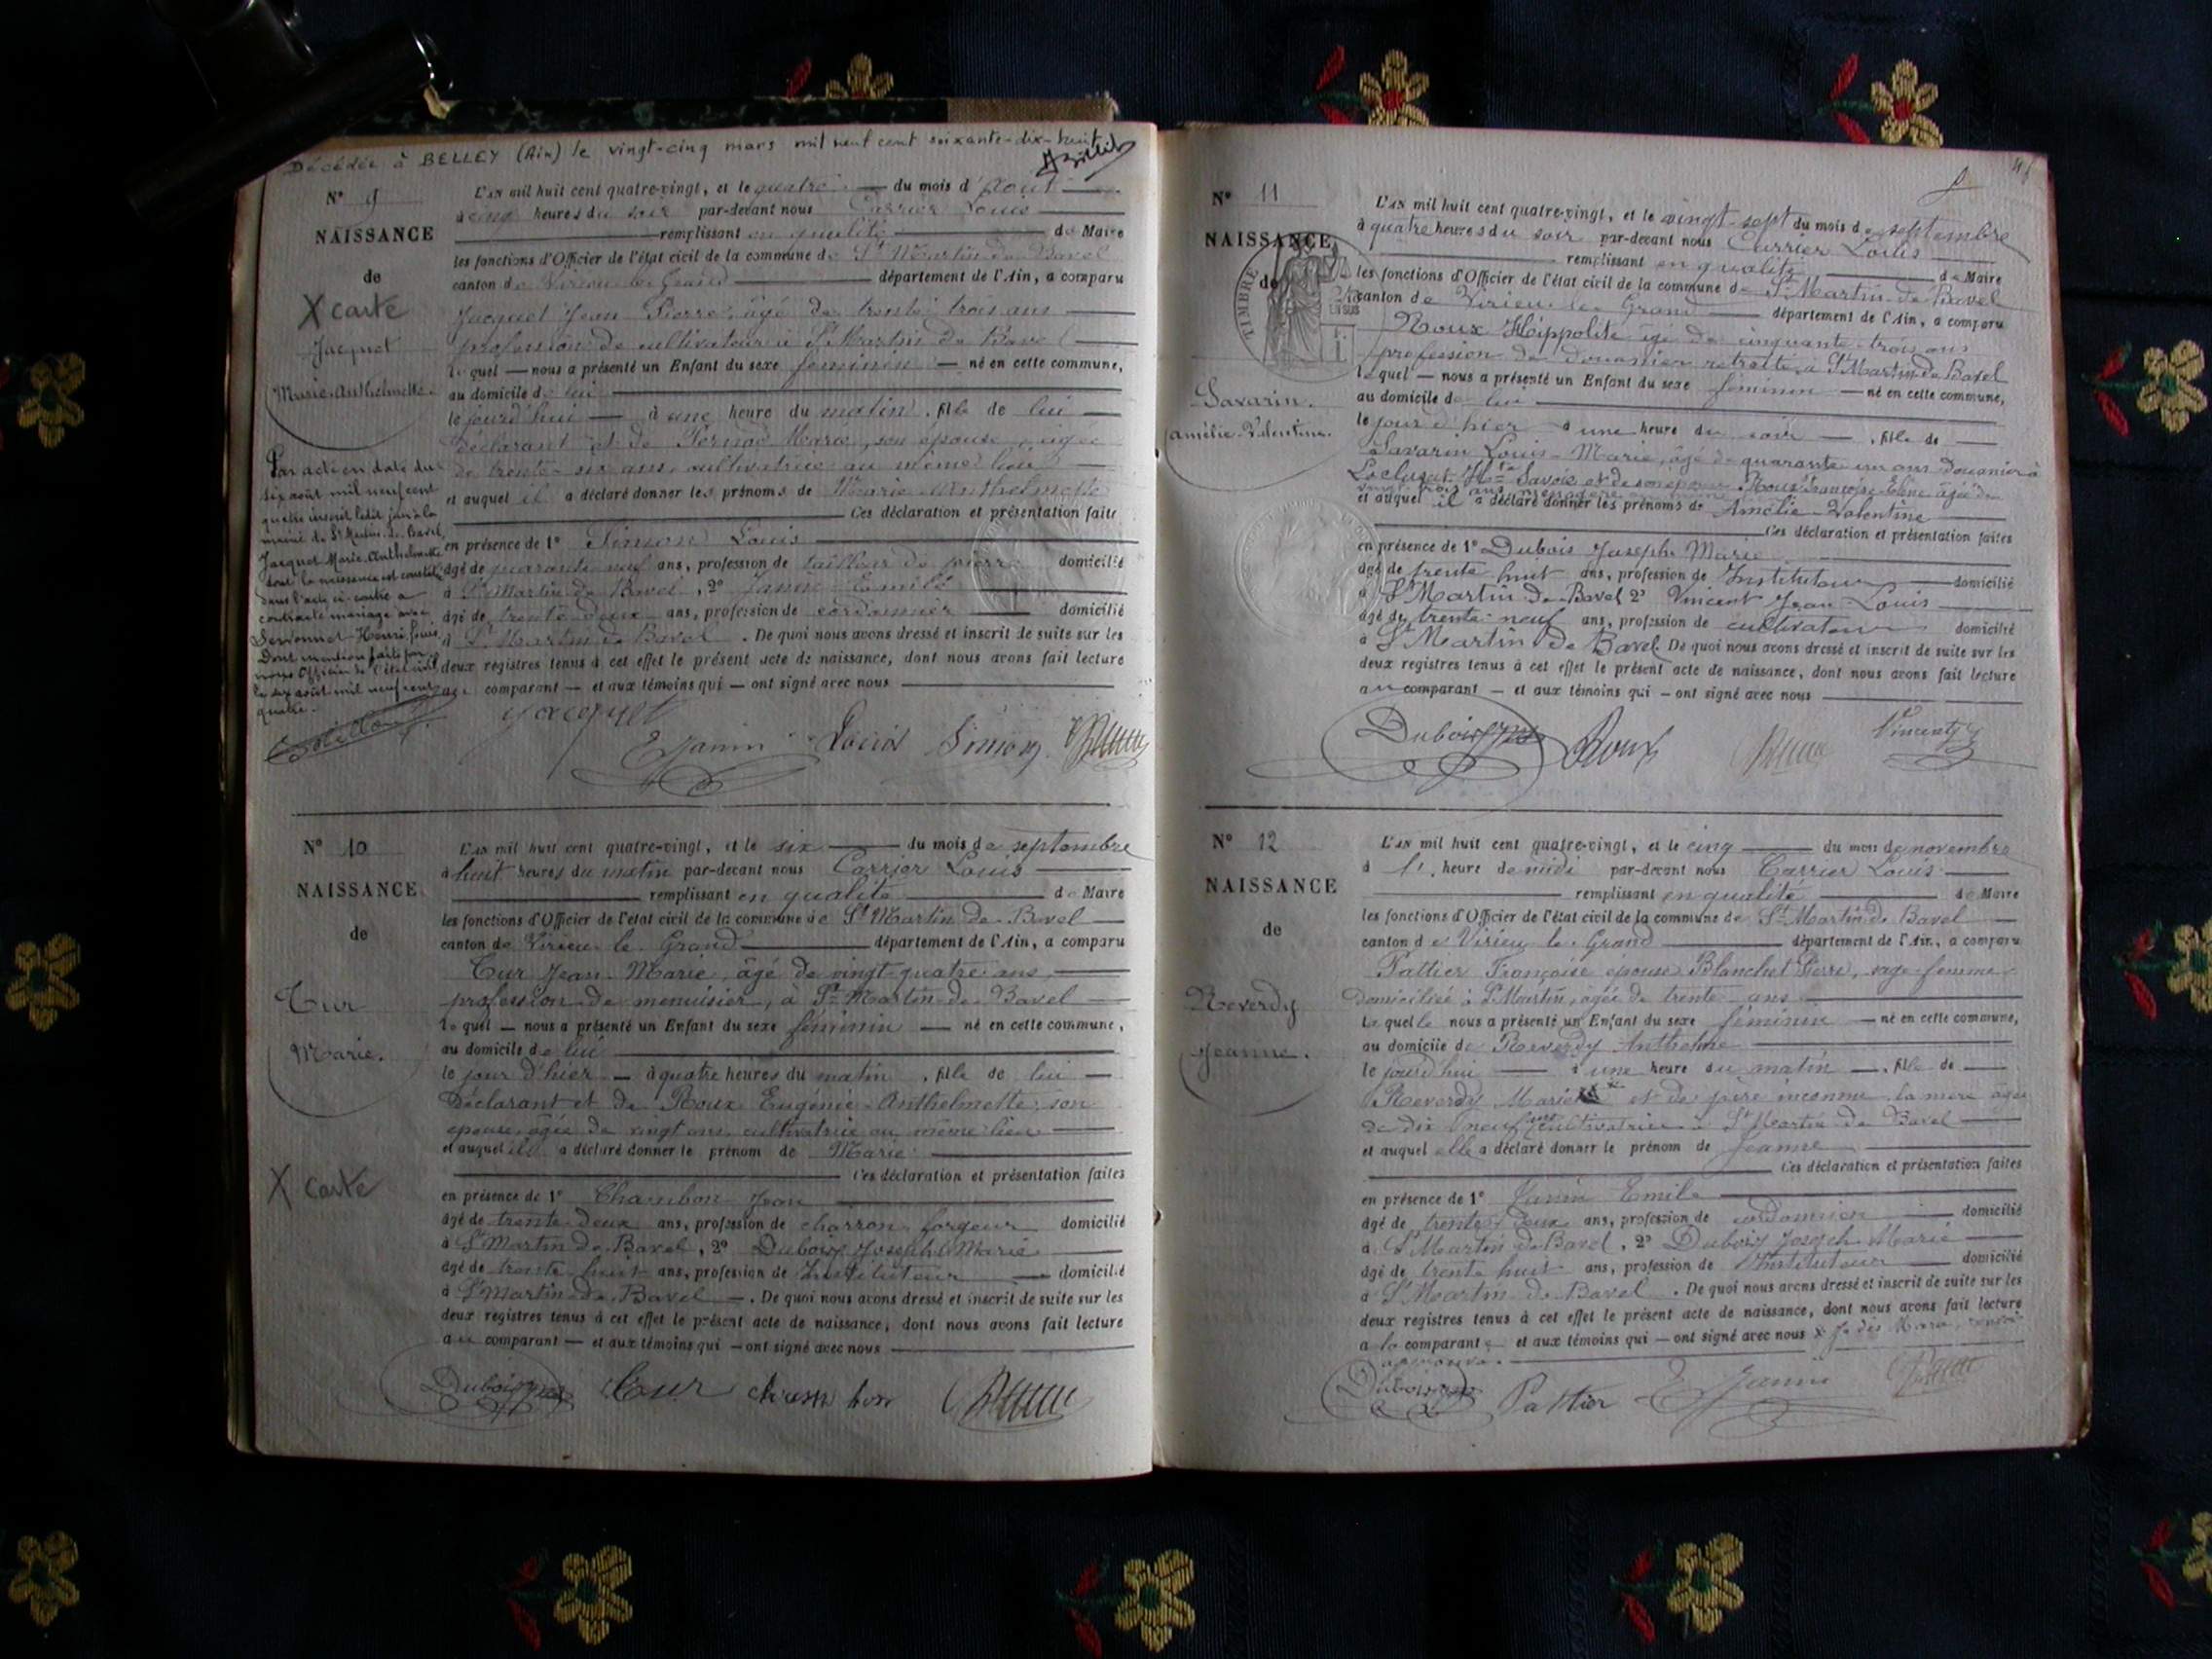 Décédée à BELLEY (Ain) le vingt-cinq mars mil neuf cent soixante-dix-huit
N° 9
NAISSANCE
de
X carte
Jacquet
Marie-Anthelmette
Par acte en date du
six août mil neuf cent
quatre inscrit ledit jour à la
mairie de St Martin de Bavel,
Jacquet Marie Anthelmette
dont la naissance est constatée
dans l'acte ci-contre a
contracté mariage avec
Henri Louis
Dont mention faite par
nous Officier de l'état civil
le six août mil neuf cent
quatre.
L'AN mil huit cent quatre-vingt, et le quatre du mois d'Août
à cinq heures du soir par-devant nous Carrier Louis
remplissant en qualité de Maire
les fonctions d'Officier de l'état civil de la commune de St Martin de Bavel
canton de Virieu le Grand département de l'Ain, a comparu
Jacquet Jean Pierre, âgé de trente trois ans
profession de cultivateur à St Martin de Bavel
lequel — nous a présenté un Enfant du sexe féminin — né en cette commune,
au domicile de lui
le jourd'hui — à une heure du matin, fille de lui
déclarant et de Marie, son épouse, âgée
de trente-six ans, cultivatrice au même lieu
et auquel il a déclaré donner les prénoms de Marie Anthelmette
Ces déclaration et présentation faites
en présence de 1° Simon Louis
âgé de quarante neuf ans, profession de tailleur de pierre domicilié
à St Martin de Bavel, 2° Janin Emile
âgé de trente deux ans, profession de cordonnier domicilié
à St Martin de Bavel. De quoi nous avons dressé et inscrit de suite sur les
deux registres tenus à cet effet le présent acte de naissance, dont nous avons fait lecture
au comparant — et aux témoins qui — ont signé avec nous
Jacquet
EJanin Louis Simon
N° 10
NAISSANCE
de
Cur
Marie.
X carte
L'AN mil huit cent quatre-vingt, et le six du mois de septembre
à huit heures du matin par-devant nous Carrier Louis
remplissant en qualité de Maire
les fonctions d'Officier de l'état civil de la commune de St Martin de Bavel
canton de Virieu le Grand département de l'Ain, a comparu
Cur Jean-Marie, âgé de vingt-quatre ans
profession de menuisier, à St Martin de Bavel
lequel — nous a présenté un Enfant du sexe féminin — né en cette commune,
au domicile de lui
le jour d'hier — à quatre heures du matin, fille de lui —
déclarant et de Roux Eugénie-Anthelmette, son
épouse, âgée de vingt ans, cultivatrice au même lieu
et auquel il a déclaré donner le prénom de Marie
Ces déclaration et présentation faites
en présence de 1° Chambon Jean
âgé de trente-deux ans, profession de charron-forgeur domicilié
à St Martin de Bavel, 2° Dubois Joseph Marie
âgé de trente huit ans, profession de Instituteur domicilié
à St Martin de Bavel —. De quoi nous avons dressé et inscrit de suite sur les
deux registres tenus à cet effet le présent acte de naissance, dont nous avons fait lecture
au comparant — et aux témoins qui — ont signé avec nous
Dubois Cur chambon
N° 11
NAISSANCE
de
TIMBRE
Savarin.
Amélie-Valentine.
L'AN mil huit cent quatre-vingt, et le vingt-sept du mois de septembre
à quatre heures du soir par-devant nous Carrier Louis
remplissant en qualité de Maire
les fonctions d'Officier de l'état civil de la commune de St Martin de Bavel
canton de Virieu le Grand département de l'Ain, a comparu
Roux Hippolite âgé de cinquante-trois ans
profession de douanier retraité, à St Martin de Bavel
lequel — nous a présenté un Enfant du sexe féminin — né en cette commune,
au domicile de lui
le jour d'hier à une heure du soir —, fille de —
Savarin Louis-Marie, âgé de quarante un ans douanier à
Hte Savoie et de son épouse Roux Françoise âgée de
vingt trois ans ménagère
et auquel il a déclaré donner les prénoms de Amélie-Valentine
Ces déclaration et présentation faites
en présence de 1° Dubois Joseph Marie
âgé de trente huit ans, profession de Instituteur domicilié
à St Martin de Bavel 2° Vincent Jean-Louis
âgé de trente-neuf ans, profession de cultivateur domicilié
à St Martin de Bavel. De quoi nous avons dressé et inscrit de suite sur les
deux registres tenus à cet effet le présent acte de naissance, dont nous avons fait lecture
au comparant — et aux témoins qui — ont signé avec nous
Dubois Roux Vincent
N° 12
NAISSANCE
de
Reverdy
Jeanne.
L'AN mil huit cent quatre-vingt, et le cinq du mois de novembre
à l'heure de midi par-devant nous Carrier Louis
remplissant en qualité de Maire
les fonctions d'Officier de l'état civil de la commune de St Martin de Bavel
canton de Virieu le Grand département de l'Ain, a comparu
Pattier Françoise épouse Blanchet Pierre, sage-femme
domiciliée à St Martin, âgée de trente ans
laquelle nous a présenté un Enfant du sexe féminin — né en cette commune,
au domicile de Reverdy Anthelme
le jourd'hui — à une heure du matin —, fille de —
Reverdy Marie et de père inconnu, la mère âgée
de dix neuf ans cultivatrice à St Martin de Bavel
et auquel elle a déclaré donner le prénom de Jeanne
Ces déclaration et présentation faites
en présence de 1° Janin Emile
âgé de trente deux ans, profession de cordonnier domicilié
à St Martin de Bavel, 2° Dubois Joseph Marie
âgé de trente huit ans, profession de Instituteur domicilié
à St Martin de Bavel. De quoi nous avons dressé et inscrit de suite sur les
deux registres tenus à cet effet le présent acte de naissance, dont nous avons fait lecture
à la comparante et aux témoins qui — ont signé avec nous
Dubois Pattier EJanin